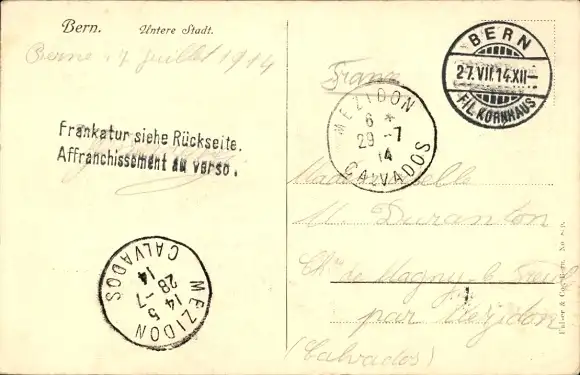 Bern. Untere Stadt.
Berne, 7 juillet 1914
Frankatur siehe Rückseite.
Affranchissement au verso.
MEZIDON
5
28 -7
14
CALVADOS
BERN
27.VII.14.XII-
FIL. KORNHAUS
France
MEZIDON
6 *
29 -7
14
CALVADOS
Mademoiselle
M. Duranton
Ch de Magny-le-Freule
par Mezidon
(Calvados)